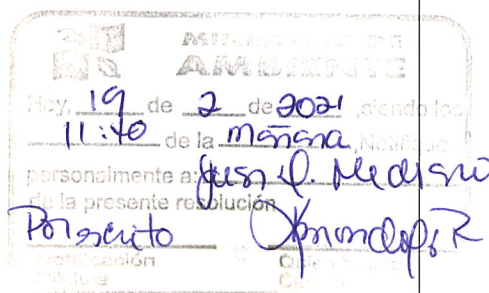 MINISTERIO DE
AMBIENTE
Hoy, 19 de 2 de 2021, siendo las
11:40 de la mañana, Notifique
personalmente a: Juan Q. Medrano
de la presente resolución
Por escrito
Notificación
Cédula